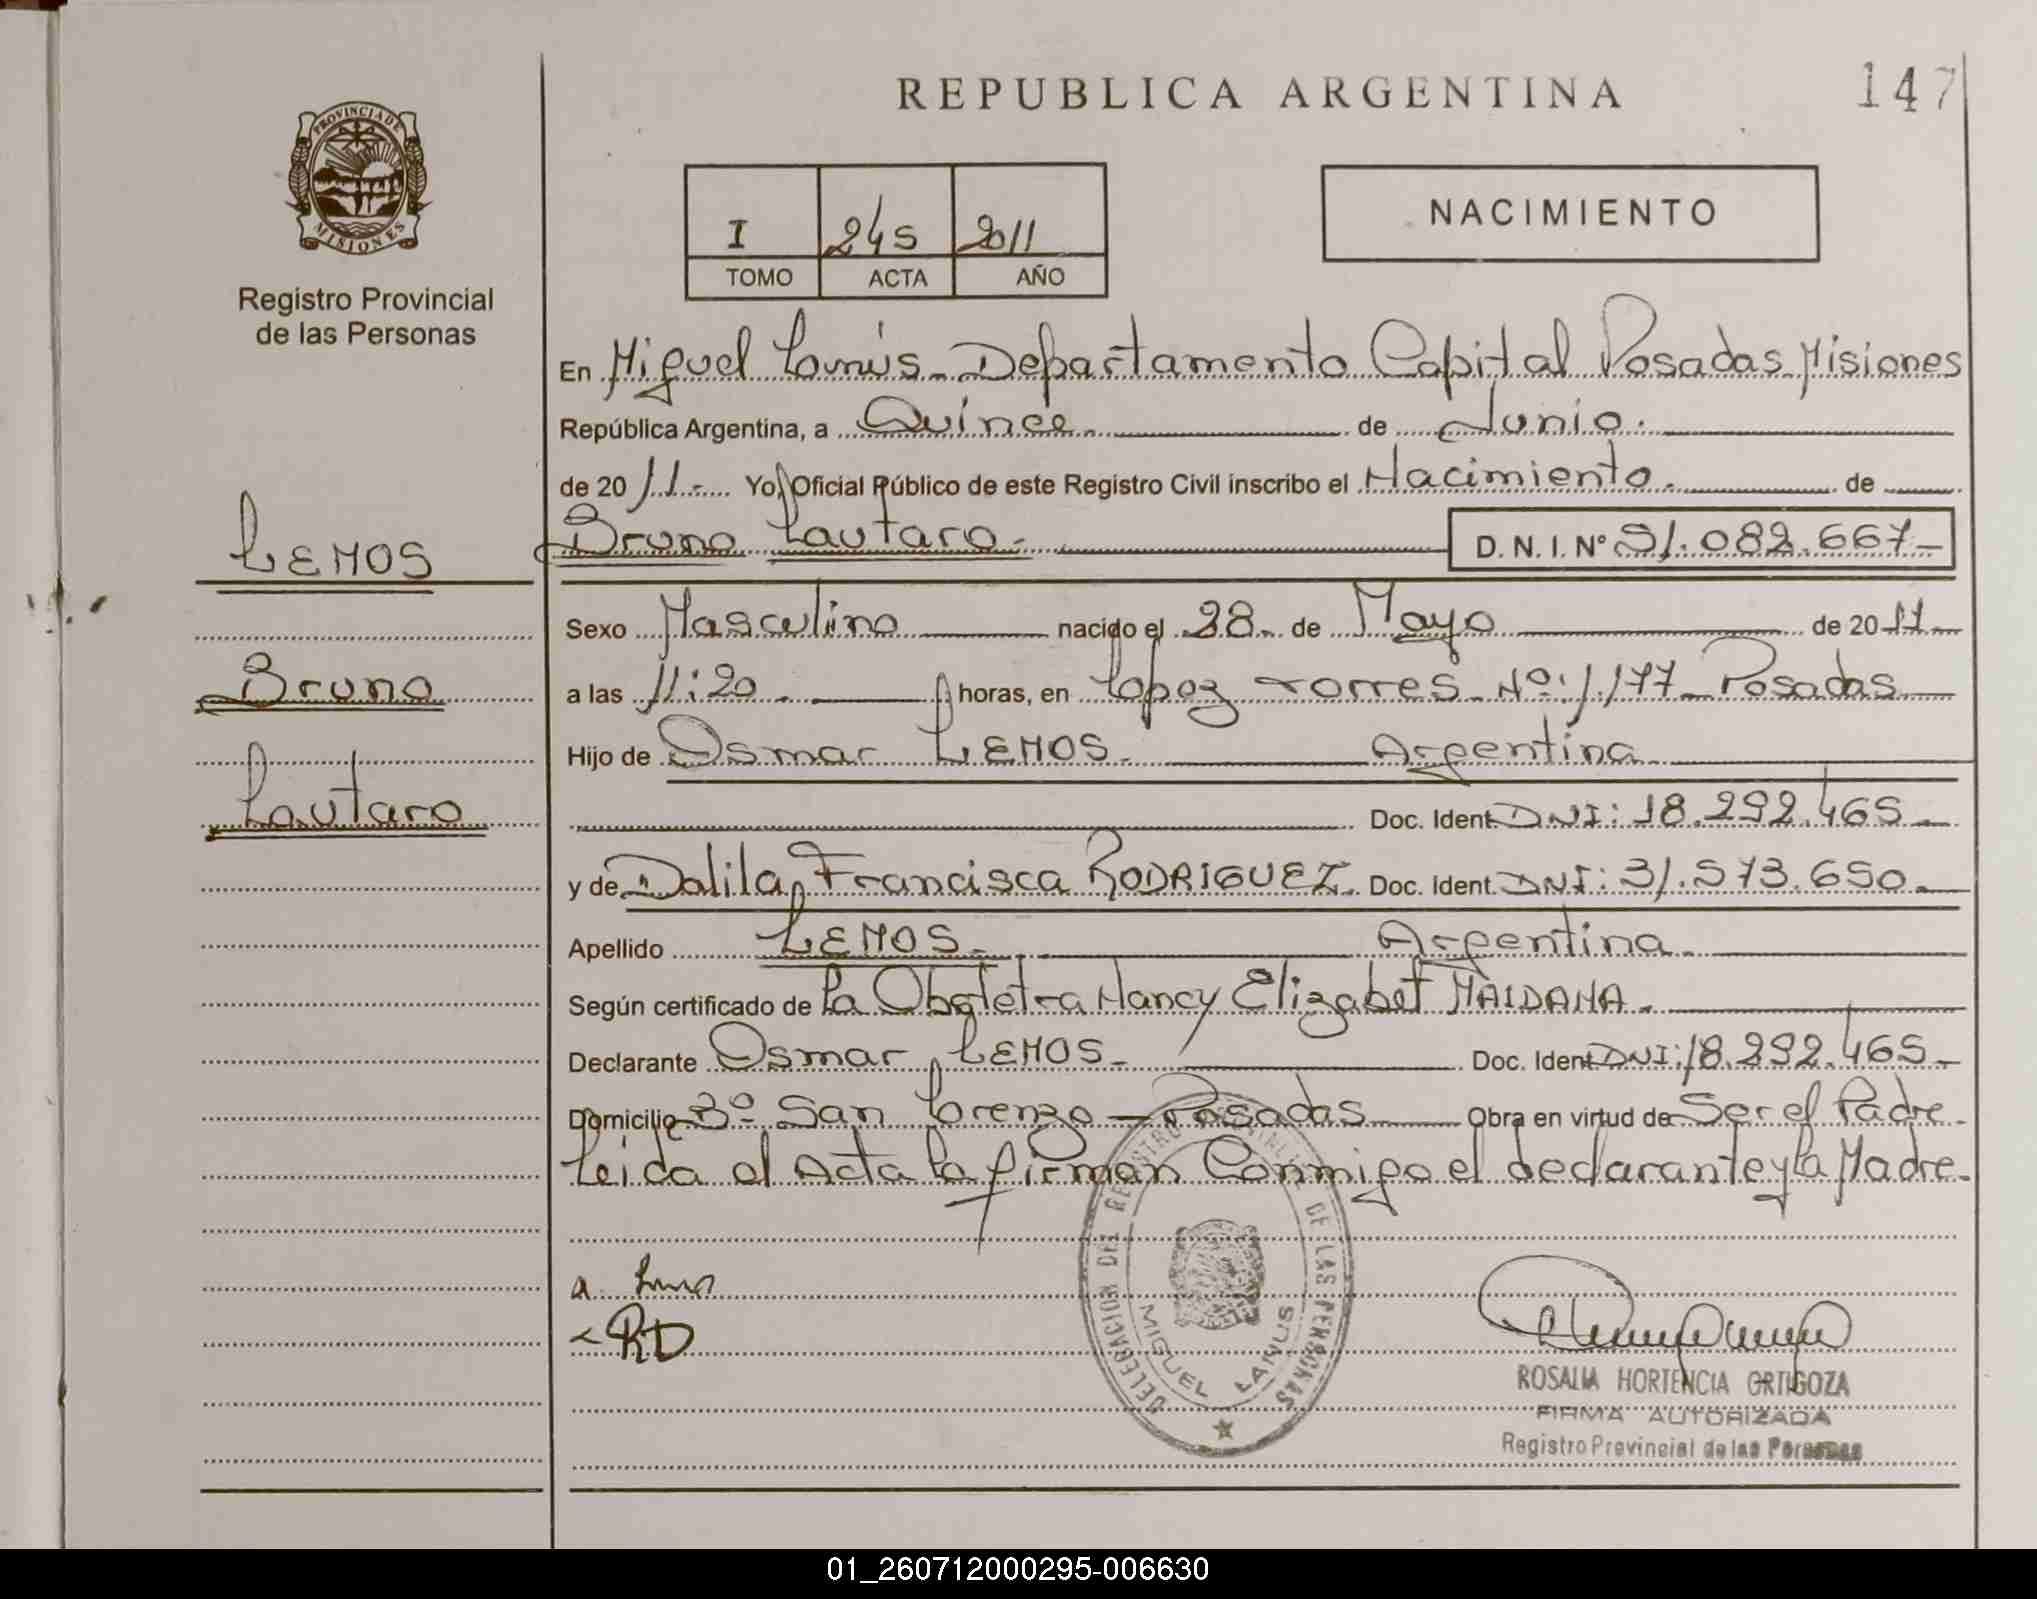 REPUBLICA ARGENTINA
147
PROVINCIA DE MISIONES
Registro Provincial
de las Personas
I 245 2011
TOMO ACTA AÑO
NACIMIENTO
En Miguel Lanús - Departamento Capital Posadas Misiones
República Argentina, a Quince. de Junio.
de 20 11.- Yo, Oficial Público de este Registro Civil inscribo el Nacimiento. de
Bruno Lautaro.- D. N. I. N° 51.082.667-
LEMOS
Bruno
Lautaro
Sexo Masculino nacido el 28. de Mayo de 20 11
a las 11:20. horas, en Lopez Torres N°: 1.177 - Posadas
Hijo de Osmar LEMOS. Argentina
Doc. Ident. DNI: 18.292.465-
y de Dalila, Francisca RODRIGUEZ. Doc. Ident. DNI: 31.573.650-
Apellido LEMOS.- Argentina.
Según certificado de La Obstetra Nancy Elizabet MAIDANA.
Declarante Osmar, LEMOS.- Doc. Ident DNI: 18.292.465-
Domicilio B° San Lorenzo - Posadas Obra en virtud de Ser el Padre.
Leida el Acta la firman Conmigo el declarante y la Madre.
DELEGACION DEL REGISTRO PROVINCIAL DE LAS PERSONAS
MIGUEL LANUS
RD
ROSALIA HORTENCIA ORTIGOZA
FIRMA AUTORIZADA
Registro Provincial de las Personas
01_260712000295-006630